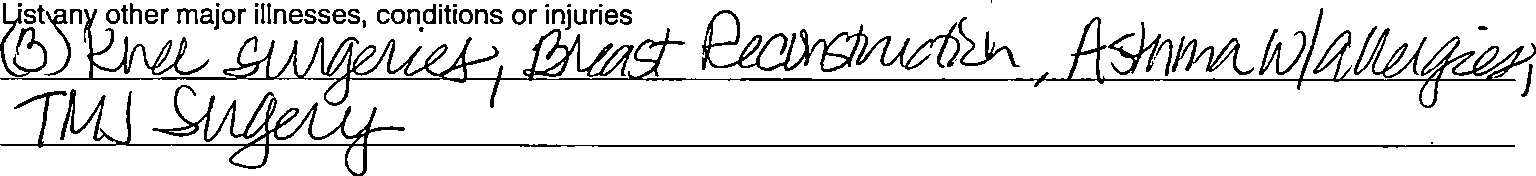 List any other major illnesses, conditions or injuries
(B) Knee surgeries, Breast Reconstruction, Asthma w/allergies,
TMJ Surgery